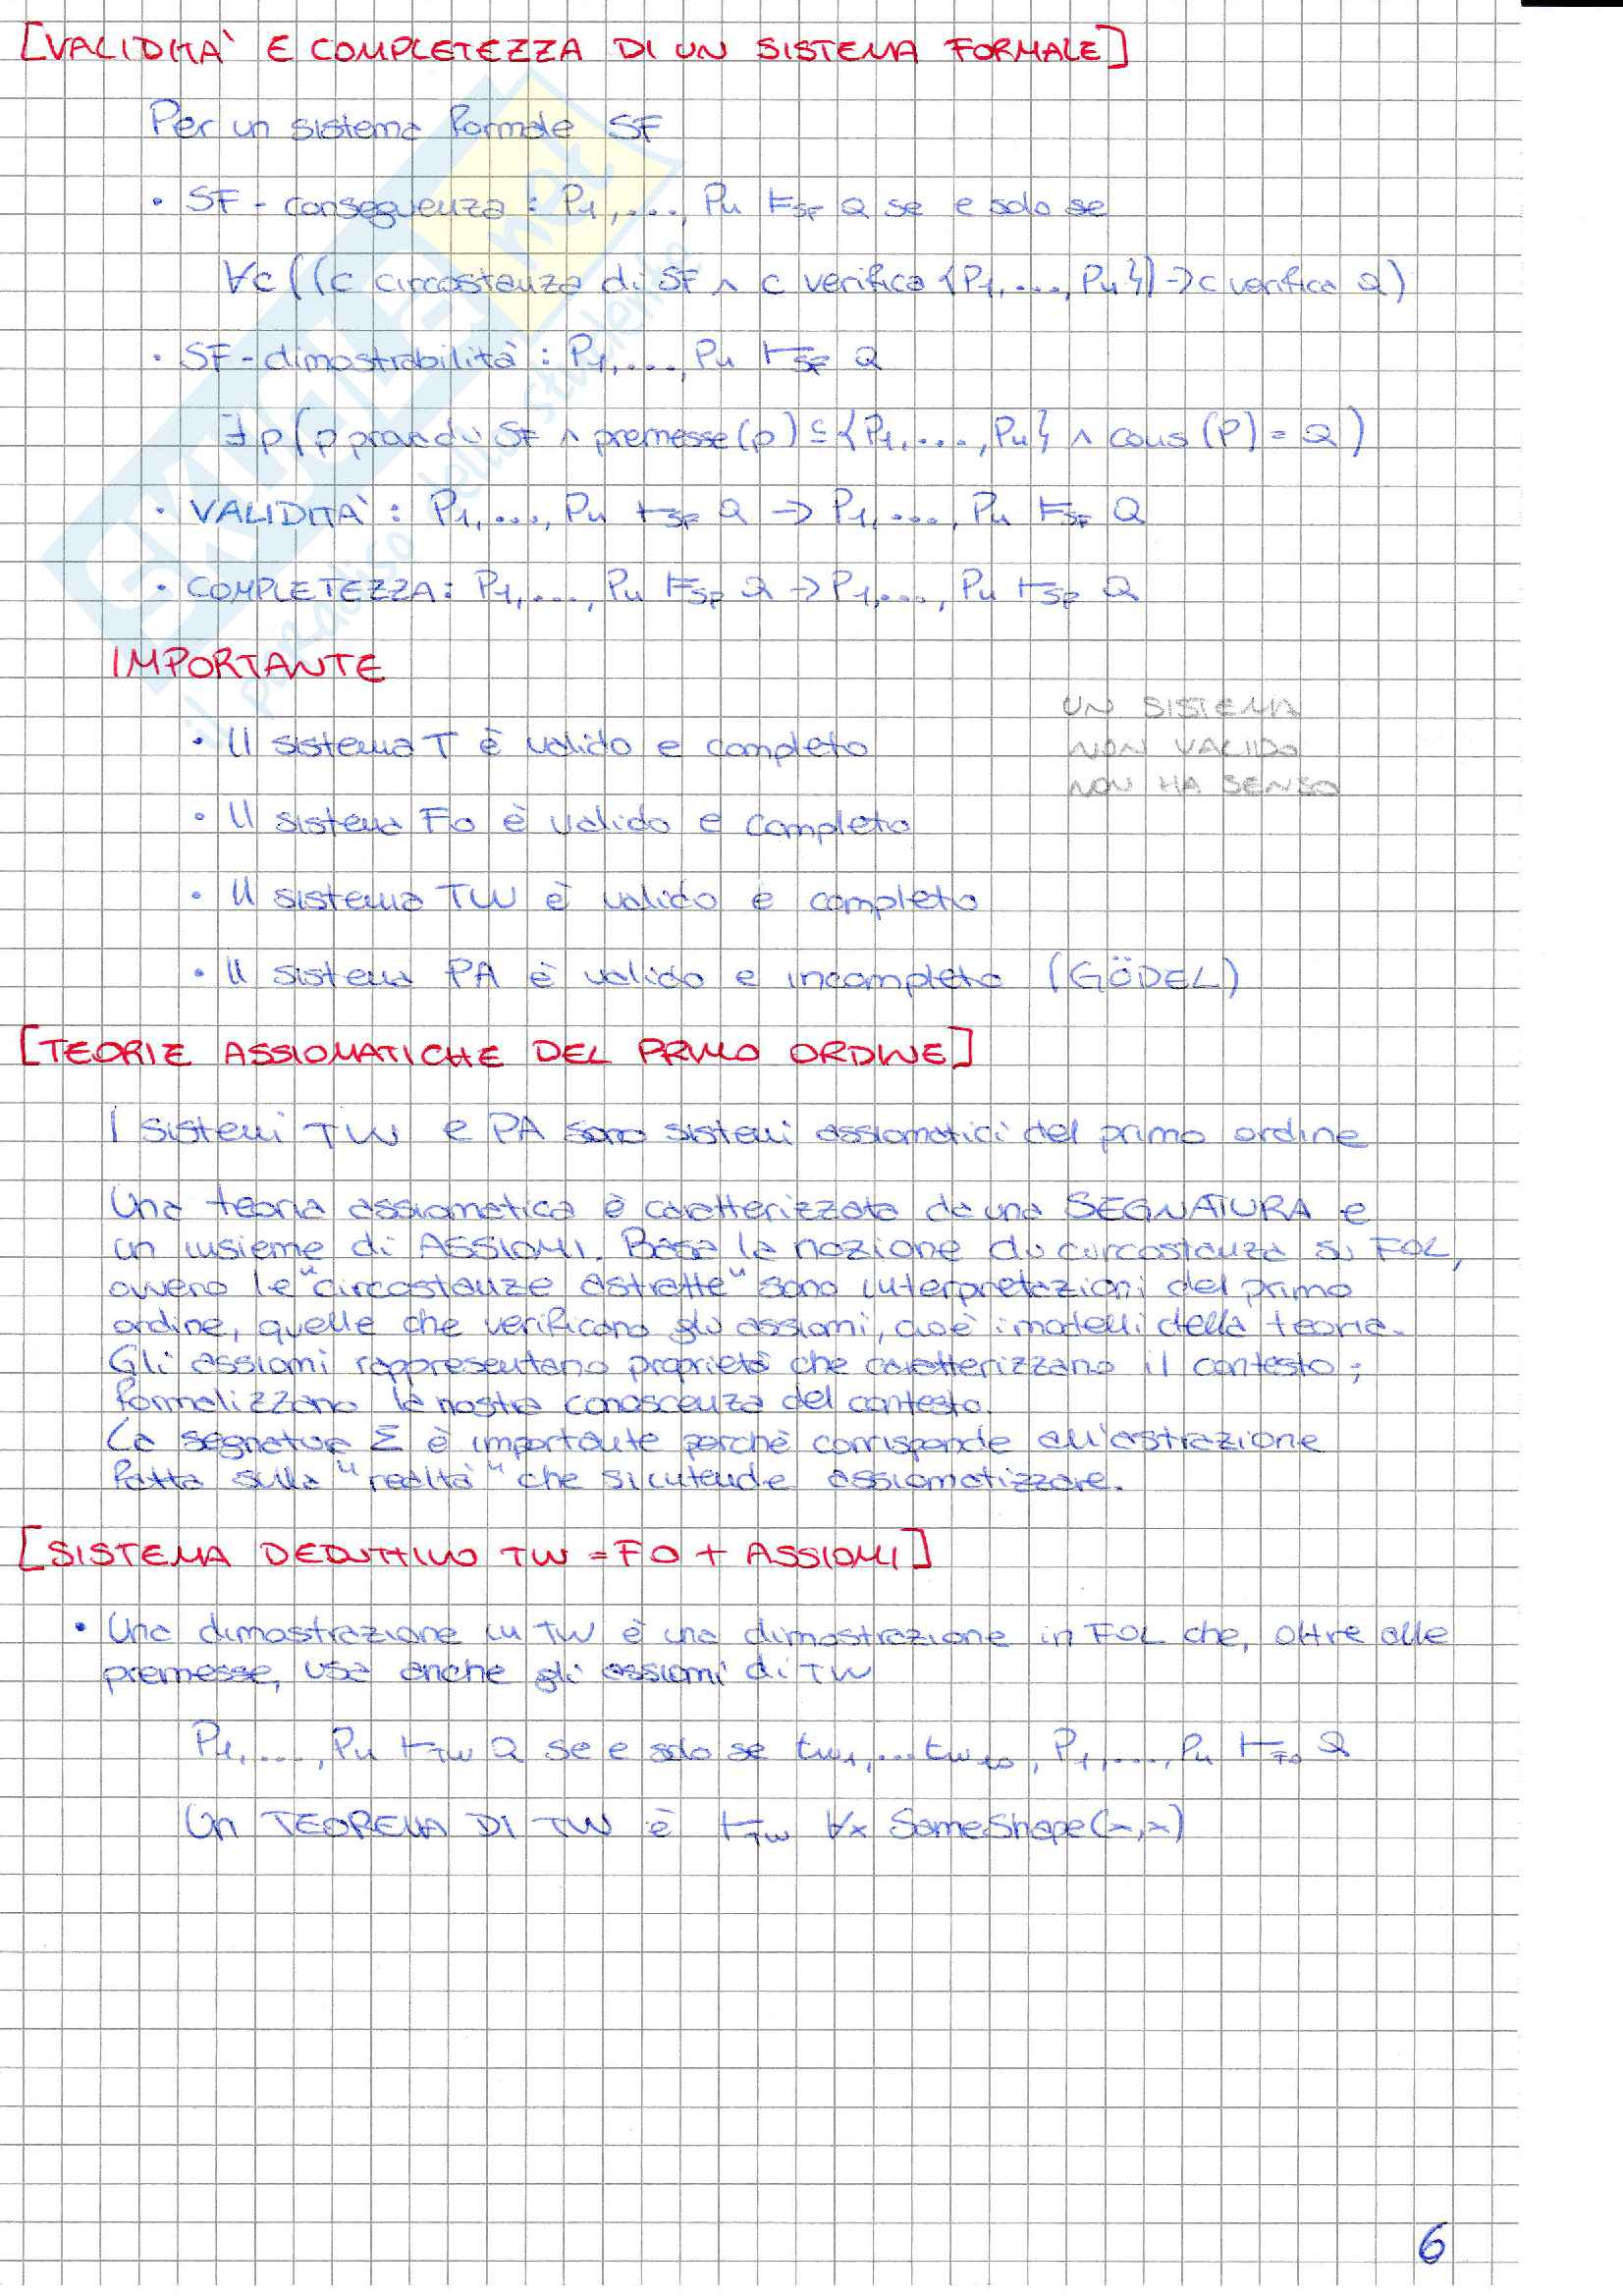 [VALIDITÀ E COMPLETEZZA DI UN SISTEMA FORMALE]
Per un sistema formale SF
• SF - conseguenza : P1, ..., Pn ⊨SF Q se e solo se
∀c ((c circostanza di SF ∧ c verifica {P1, ..., Pn}) -> c verifica Q)
• SF - dimostrabilità : P1, ..., Pn ⊢SF Q
∃p (p prova di SF ∧ premesse(p) ⊆ {P1, ..., Pn} ∧ cons (P) = Q)
• VALIDITÀ : P1, ..., Pn ⊢SF Q -> P1, ..., Pn ⊨SF Q
• COMPLETEZZA: P1, ..., Pn ⊨SF Q -> P1, ..., Pn ⊢SF Q
IMPORTANTE
UN SISTEMA
NON VALIDO
NON HA SENSO
• Il sistema T è valido e completo
• Il sistema Fo è valido e completo
• Il sistema TW è valido e completo
• Il sistema PA è valido e incompleto (GÖDEL)
[TEORIE ASSIOMATICHE DEL PRIMO ORDINE]
I sistemi TW e PA sono sistemi assiomatici del primo ordine
Una teoria assiomatica è caratterizzata da una SEGNATURA e
un insieme di ASSIOMI. Basa la nozione di circostanza su FOL,
ovvero le "circostanze astratte" sono interpretazioni del primo
ordine, quelle che verificano gli assiomi, cioè i modelli della teoria.
Gli assiomi rappresentano proprietà che caratterizzano il contesto;
formalizzano la nostra conoscenza del contesto.
La segnatura Σ è importante perchè corrisponde all'astrazione
fatta sulla "realtà" che si intende assiomatizzare.
[SISTEMA DEDUTTIVO TW = FO + ASSIOMI]
• Una dimostrazione in TW è una dimostrazione in FOL che, oltre alle
premesse, usa anche gli assiomi di TW
P1, ..., Pn ⊢TW Q se e solo se tw1, ... tw10, P1, ..., Pn ⊢FO Q
Un TEOREMA DI TW è ⊢TW ∀x SameShape(x,x)
6